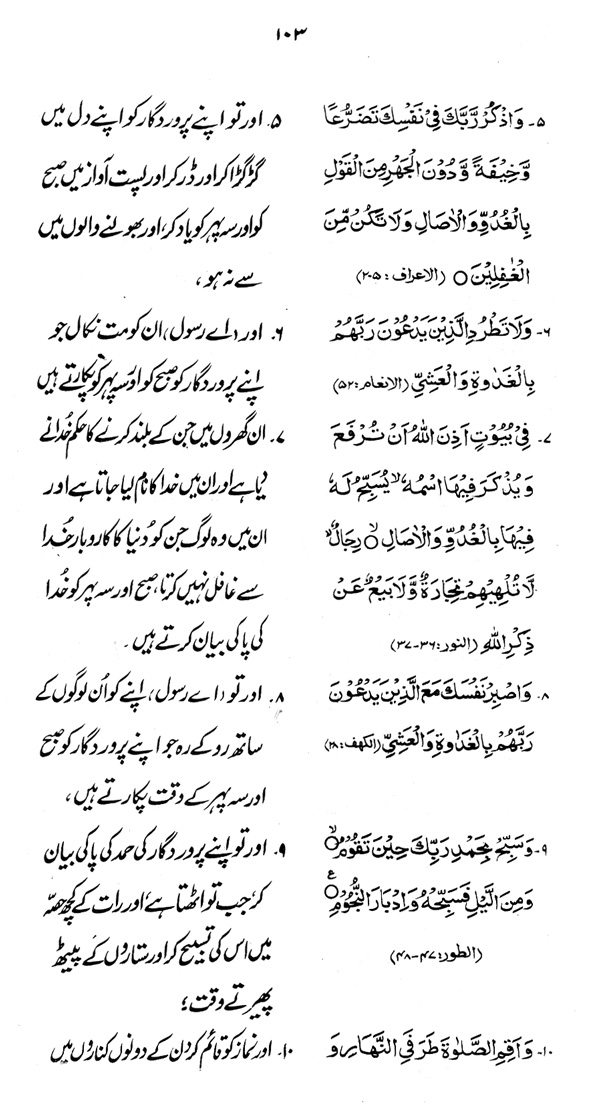 ۱۰۳
۵۔ وَاذْكُرْ رَّبَّكَ فِیْ نَفْسِكَ تَضَرُّعًا
وَّخِیْفَةً وَّدُوْنَ الْجَهْرِ مِنَ الْقَوْلِ
بِالْغُدُوِّ وَالْاٰصَالِ وَلَا تَكُنْ مِّنَ
الْغٰفِلِیْنَ ○ (الاعراف: ۲۰۵)
۶۔ وَلَا تَطْرُدِ الَّذِیْنَ یَدْعُوْنَ رَبَّهُمْ
بِالْغَدٰوةِ وَالْعَشِیِّ (الانعام: ۵۲)
۷۔ فِیْ بُیُوْتٍ اَذِنَ اللّٰهُ اَنْ تُرْفَعَ
وَ یُذْكَرَ فِیْهَا اسْمُهٗ ۙ یُسَبِّحُ لَهٗ
فِیْهَا بِالْغُدُوِّ وَالْاٰصَالِ ○ۙ رِجَالٌ ۙ
لَّا تُلْهِیْهِمْ تِجَارَةٌ وَّلَا بَیْعٌ عَنْ
ذِكْرِ اللّٰهِ (النور: ۳۶-۳۷)
۸۔ وَاصْبِرْ نَفْسَكَ مَعَ الَّذِیْنَ یَدْعُوْنَ
رَبَّهُمْ بِالْغَدٰوةِ وَالْعَشِیِّ (الکهف: ۲۸)
۹۔ وَسَبِّحْ بِحَمْدِ رَبِّكَ حِیْنَ تَقُوْمُ ○ۙ
وَمِنَ الَّیْلِ فَسَبِّحْهُ وَاِدْبَارَ النُّجُوْمِ ○ع
(الطور: ۴۷-۴۸)
۱۰۔ وَاَقِمِ الصَّلٰوةَ طَرَفَیِ النَّهَارِ وَ
۵۔ اور تو اپنے پروردگار کو اپنے دل میں
گڑگڑا کر اور ڈر کر اور پست آواز میں صبح
کو اور سہ پہر کو یاد کر، اور بھولنے والوں میں
سے نہ ہو،
۶۔ اور (اے رسول) ان کو مت نکال جو
اپنے پروردگار کو صبح کو اور سہ پہر کو پکارتے ہیں
۷۔ ان گھروں میں جن کے بلند کرنے کا حکم خُدا نے
دیا ہے اور ان میں خدا کا نام لیا جاتا ہے اور
ان میں وہ لوگ جن کو دُنیا کا کاروبار خُدا
سے غافل نہیں کرتا، صبح اور سہ پہر کو خُدا
کی پاکی بیان کرتے ہیں۔
۸۔ اور تو (اے رسول) اپنے کو اُن لوگوں کے
ساتھ روکے رہ جو اپنے پروردگار کو صبح
اور سہ پہر کے وقت پکارتے ہیں،
۹۔ اور تو اپنے پروردگار کی حمد کی پاکی بیان
کر، جب تو اٹھتا ہے، اور رات کے کچھ حصّہ
میں اس کی تسبیح کر اور ستاروں کے پیٹھ
پھیرتے وقت؛
۱۰۔ اور نماز کو قائم کر دن کے دونوں کناروں میں